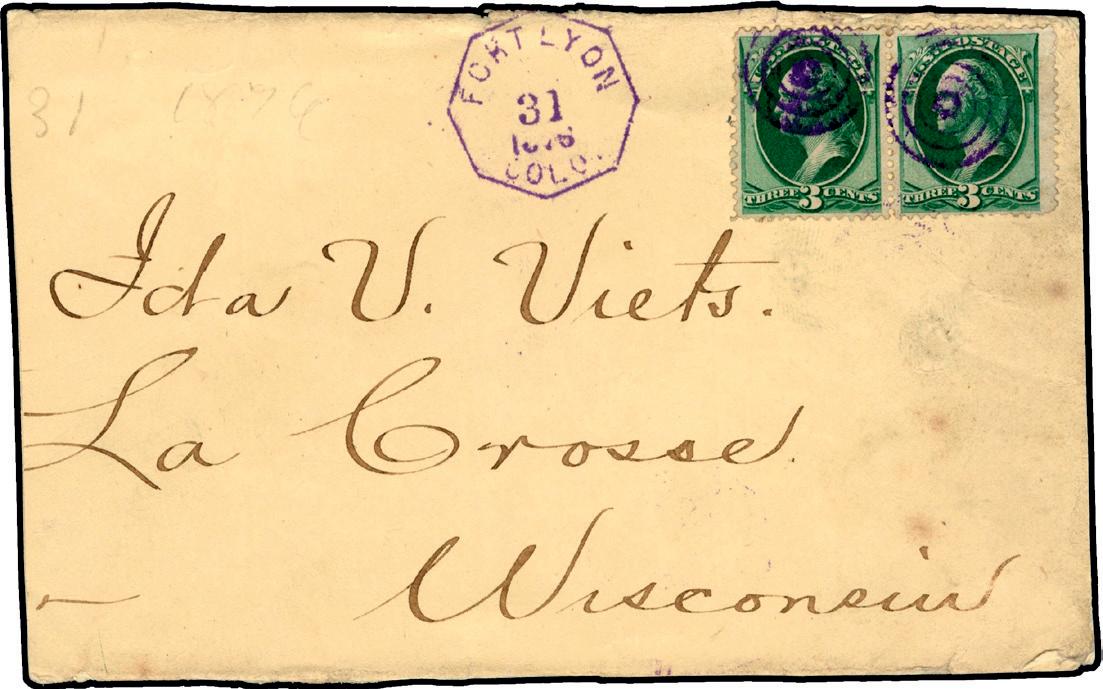 31 1876
FORT LYON
31
1876
COLO.
U.S. POSTAGE
THREE 3 CENTS
U.S. POSTAGE
THREE 3 CENTS
Ida V. Viets.
La Crosse
Wisconsin